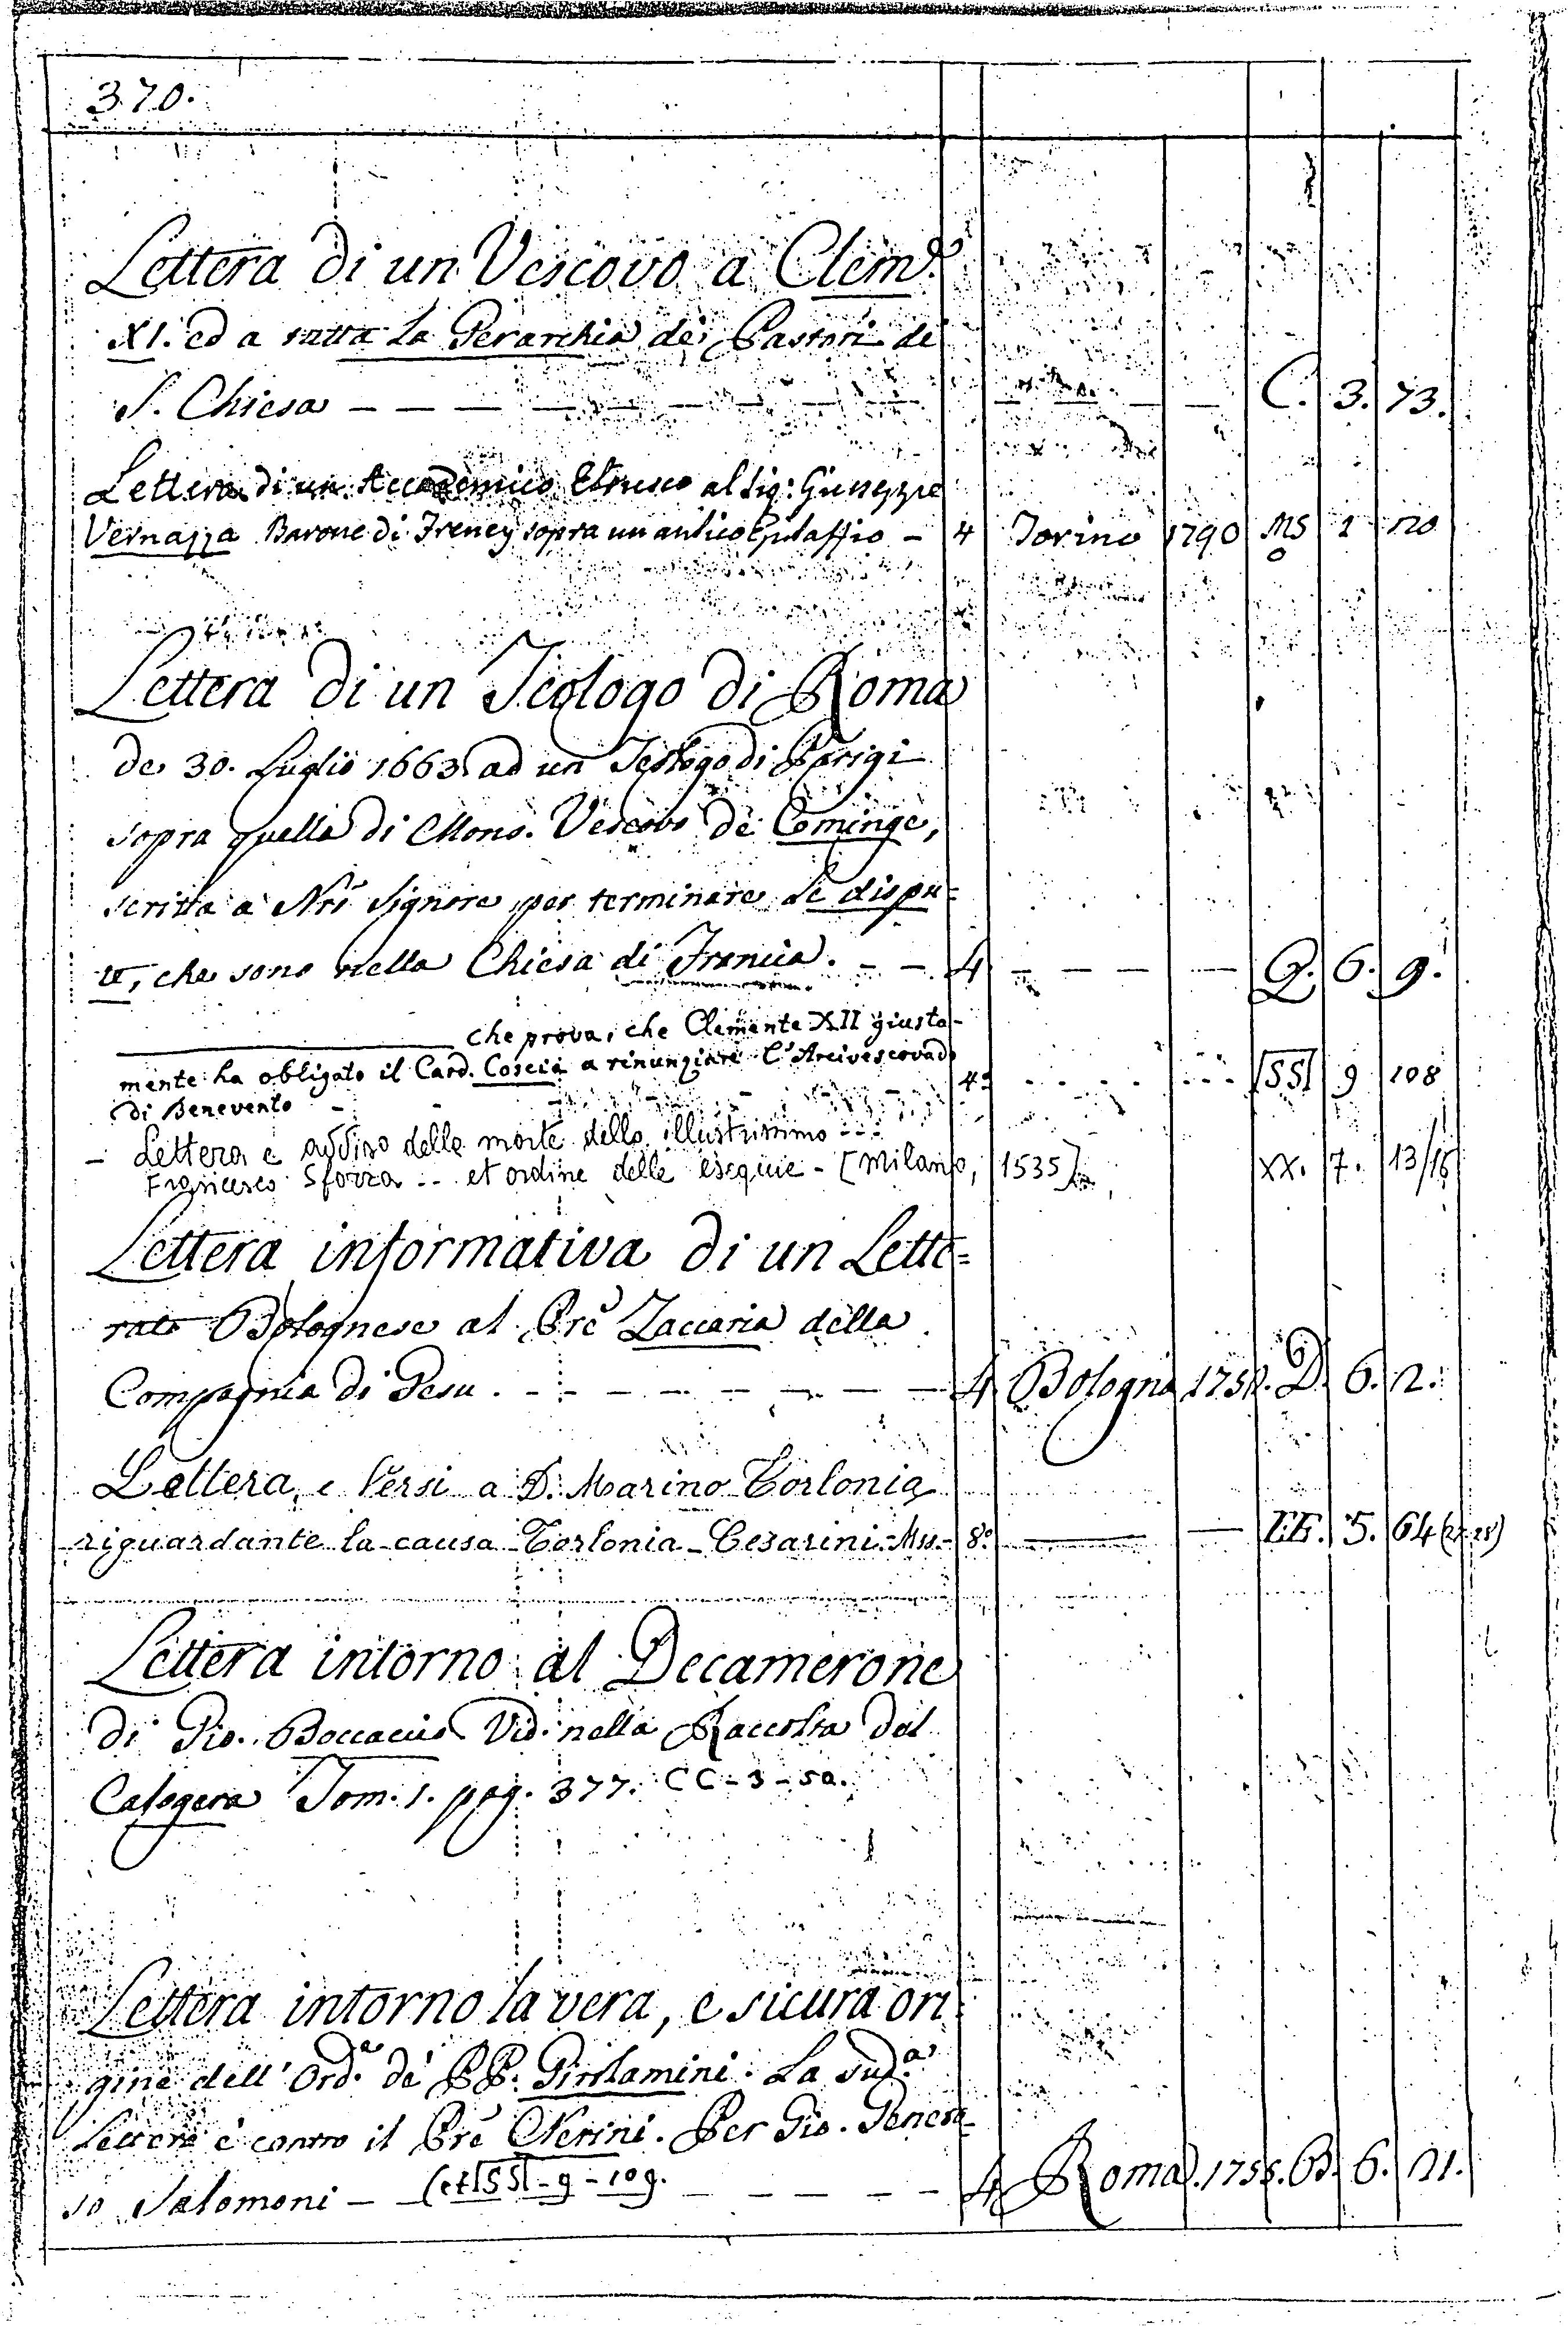 370.
Lettera di un Vescovo a Clem.e
XI. ed a tutta la Gerarchia dei Pastori di
S. Chiesa — — — — — — — — — — C. 3. 73.
Lettera di un Accademico Etrusco al Sig: Giuseppe
Vernazza Barone di Freney sopra un antico Epitaffio – 4 Torino 1790 MS 1 120
o
Lettera di un Teologo di Roma
de 30. Luglio 1663. ad un Teologo di Parigi
sopra quella di Mons. Vescovo de Cominge,
scritta a Nrõ Signore per terminare le dispu=
te, che sono nella Chiesa di Francia. – – 4 — — — — Q. 6. 9.
che prova, che Clemente XII giusta-
mente ha obligato il Card. Coscia a rinunziare l'Arcivescovado
di Benevento - - - - 4.o SS 9 108
– Lettera e avviso della morte dello illustrissimo ...
Francesco Sforza .. et ordine delle esequie - [Milano, 1535] XX. 7. 13/16
Lettera informativa di un Lette=
rato Bolognese al Prẽ Zaccaria della
Compagnia di Gesu. – – – – – – – 4 Bologna D. 6. 2.
Lettera, e Versi a D. Marino Torlonia
riguardante la causa Torlonia - Cesarini. Mss. - 8.o — — EE. 5. 64
Lettera intorno al Decamerone
di Gio. Boccaccio Vid. nella Raccolta del
Calogera Tom. 1. pag. 377. CC - 3 - 50.
Lettera intorno la vera, e sicura ori=
gine dell' Ord.e de PP. Girolamini. La sud.a
Lettera è contro il Prẽ Nerini. Per Gio. Genero=
so Salomoni — (et SS - 9 - 109. — — — — 4 Roma. B. 6. 21.